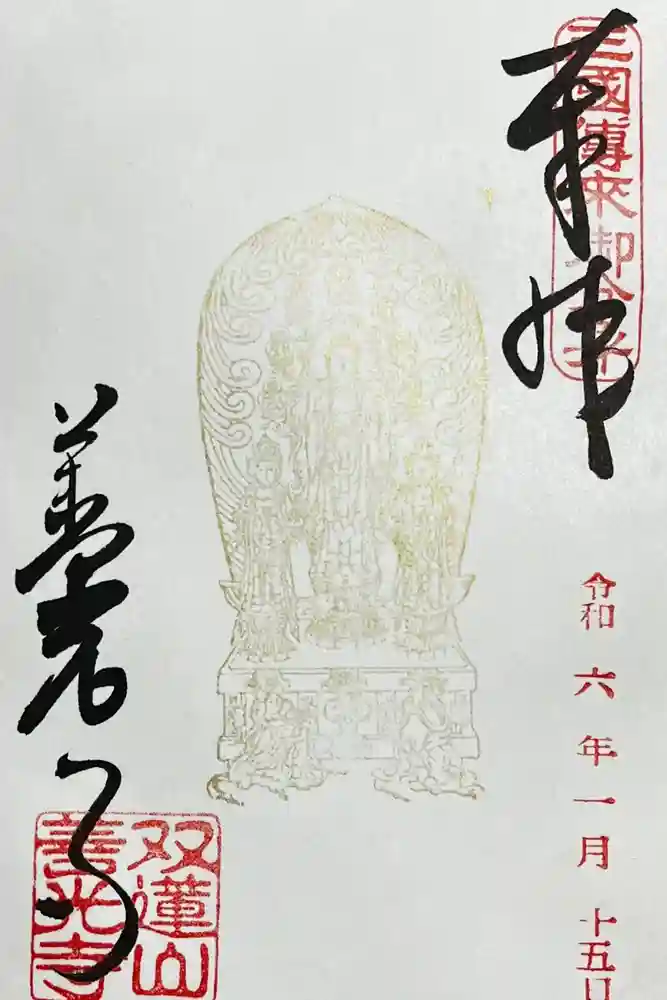 奉拝
三國傳來御分身
令和六年一月十五日
善光寺
双蓮山
善光寺